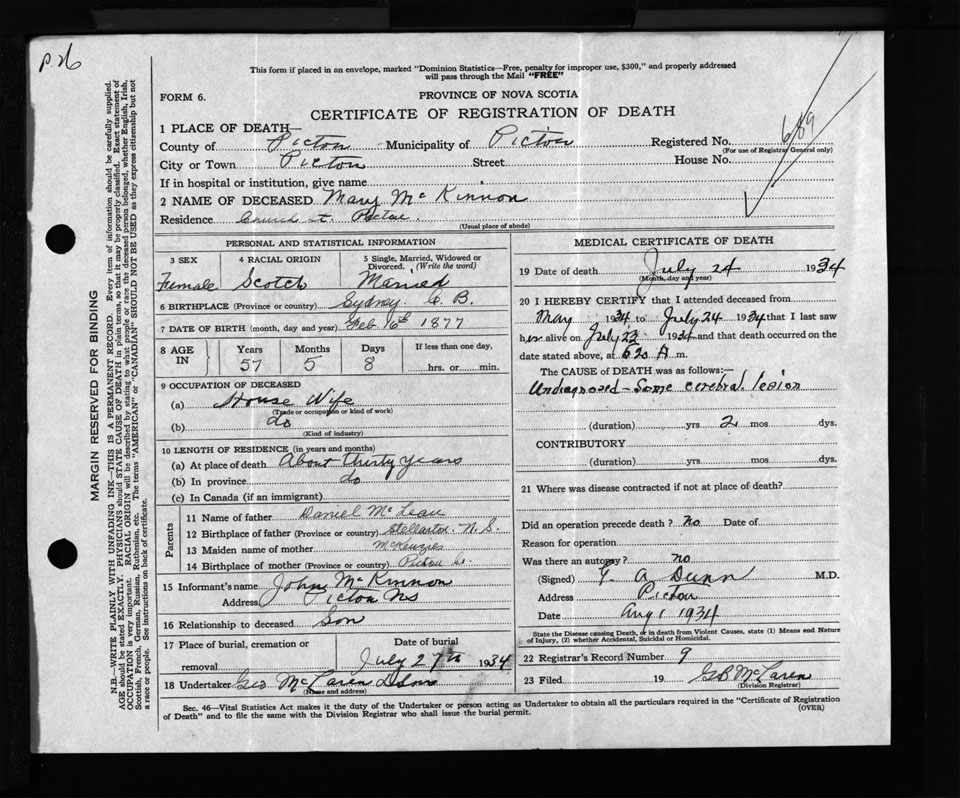 P. 26
This form if placed in an envelope, marked "Dominion Statistics—Free, penalty for improper use, $300," and properly addressed
will pass through the Mail "FREE"
FORM 6.
PROVINCE OF NOVA SCOTIA
CERTIFICATE OF REGISTRATION OF DEATH
689
1 PLACE OF DEATH—
County of Pictou Municipality of Pictou Registered No.
(For use of Registrar General only)
City or Town Pictou Street House No.
If in hospital or institution, give name
2 NAME OF DECEASED Mary McKinnon
Residence Church St. Pictou.
(Usual place of abode)
PERSONAL AND STATISTICAL INFORMATION
3 SEX 4 RACIAL ORIGIN 5 Single, Married, Widowed or
Divorced. (Write the word)
Female Scotch Married
6 BIRTHPLACE (Province or country) Sydney C. B.
7 DATE OF BIRTH (month, day and year) Feb. 16th 1877
8 AGE IN Years Months Days If less than one day,
57 5 8 hrs. or min.
9 OCCUPATION OF DECEASED
(a) House Wife
(Trade or occupation or kind of work)
(b) do
(Kind of industry)
10 LENGTH OF RESIDENCE (in years and months)
(a) At place of death About thirty years
(b) In province do
(c) In Canada (if an immigrant)
Parents
11 Name of father Daniel McLean
12 Birthplace of father (Province or country) Stellarton N.S.
13 Maiden name of mother McKenzie
14 Birthplace of mother (Province or country) Pictou Co.
15 Informant's name John McKinnon
Address Pictou NS
16 Relationship to deceased Son
17 Place of burial, cremation or Date of burial
removal July 27th 1934
18 Undertaker Geo McLaren & Sons
(Name and address)
MEDICAL CERTIFICATE OF DEATH
19 Date of death July 24 1934
(Month, day and year)
20 I HEREBY CERTIFY that I attended deceased from
May 1934 to July 24 1934 that I last saw
her alive on July 23 1934 and that death occurred on the
date stated above, at 6 20 A m.
The CAUSE of DEATH was as follows:
Undiagnosed – Some cerebral lesion
(duration) yrs 2 mos dys.
CONTRIBUTORY
(duration) yrs mos dys.
21 Where was disease contracted if not at place of death?
Did an operation precede death? no Date of
Reason for operation
Was there an autopsy? no
(Signed) G. A Dunn M.D.
Address Pictou
Date Aug 1 1934
State the Disease causing Death, or in death from Violent Causes, state (1) Means and Nature
of Injury, (2) whether Accidental, Suicidal or Homicidal.
22 Registrar's Record Number 9
23 Filed 19 G B McLaren
(Division Registrar)
Sec. 46—Vital Statistics Act makes it the duty of the Undertaker or person acting as Undertaker to obtain all the particulars required in the "Certificate of Registration
of Death" and to file the same with the Division Registrar who shall issue the burial permit. (OVER)
MARGIN RESERVED FOR BINDING
N.B.—WRITE PLAINLY WITH UNFADING INK—THIS IS A PERMANENT RECORD. Every item of information should be carefully supplied.
AGE should be stated EXACTLY. PHYSICIANS should STATE CAUSE OF DEATH in plain terms, so that it may be properly classified. Exact statement of
OCCUPATION is very important. RACIAL ORIGIN will be described by stating to what people or race the deceased person belonged, whether English, Irish,
Scottish, French, German, Russian, Ruthenian, etc. The terms "AMERICAN" or "CANADIAN" SHOULD NOT BE USED as they express citizenship but not
a race or people. See instructions on back of certificate.